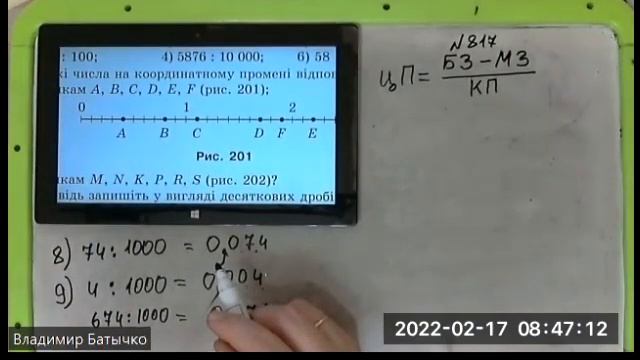 : 100; 4) 5876 : 10 000; 6) 58
кі числа на координатному промені відпов
кам A, B, C, D, E, F (рис. 201);
0 1 2
A B C D F E
Рис. 201
кам M, N, K, P, R, S (рис. 202)?
відь запишіть у вигляді десяткових дробі
№ 817
ЦП = БЗ – МЗ
КП
8) 74 : 1000 = 0,074
9) 4 : 1000 =
674 : 1000 =
Владимир Батычко
2022-02-17 08:47:12